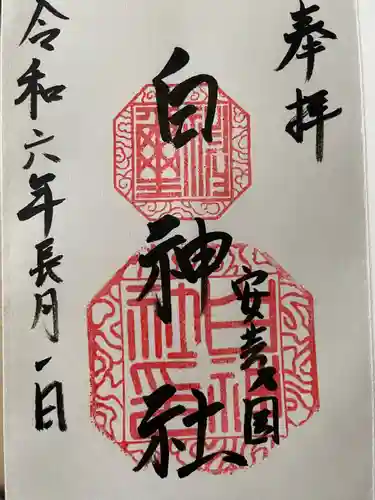 奉拝
安芸国
白神社
令和六年長月一日